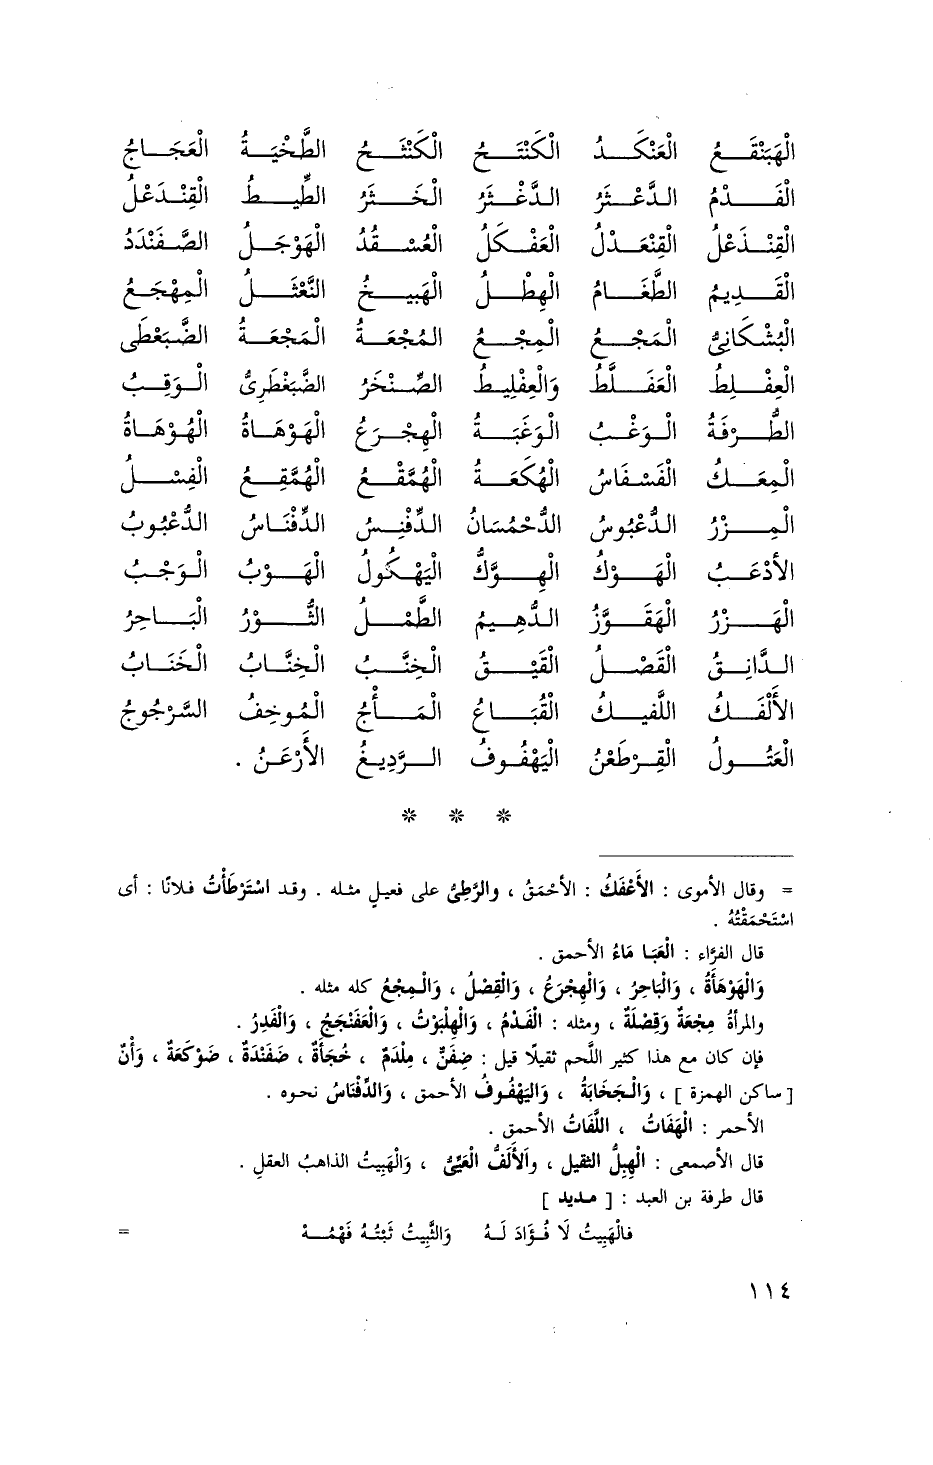 الْهَبَنْقَعُ الْعَنْكَدُ الْكَنْتَحُ الْكَنْثَحُ الطَّخْيَةُ الْعَجَاجُ
الْفَدْمُ الدَّعْثَرُ الدَّغْثَرُ الْخَثَرُ الطَّيطُ الْقِنْدَعْلُ
الْقِنْذَعْلُ الْقِنْعَدْلُ الْعَفْكَلُ الْعُسْقُدُ الْهَوْجَلُ الصَّفَنْدَدُ
الْقَدِيمُ الطَّغَامُ الْهِطْلُ الْهَبِيخُ النَّعْثَلُ الْمِهْجَعُ
الْبُشْكَانِيُّ الْمَجْعُ الْمِجْعُ الْمُجْعَةُ الْمَجْعَةُ الضَّبَعْطَى
الْعِفْلِطُ الْعَفَلَّطُ وَالْعِفْلِيطُ الصِّنْخَرُ الضَّبَغْطَرِيُّ الْوَقِبُ
الطُّرْفَةُ الْوَغْبُ الْوَغَبَةُ الْهِجْرَعُ الْهَوْهَاةُ الْهُوْهَاةُ
الْمِعَكُ الْفَسْفَاسُ الْهُكَعَةُ الْهُمَّقْعُ الْهُمَّقِعُ الْفِسْلُ
الْمِزْرُ الدُّعْبُوسُ الدُّحْمُسَانُ الدِّفْنِسُ الدِّفْنَاسُ الدُّعْبُوبُ
الأَدْعَبُ الْهَوْكُ الْهِوَّكُ الْيَهْكُولُ الْهَوْبُ الْوَجْبُ
الْهَزْرُ الْهَقَوَّرُ الدُّهِيمُ الطَّمْلُ الثَّوْرُ الْبَاجِرُ
الدَّانِقُ الْقَصْلُ الْقَيْقُ الْخِنَّبُ الْخِنَّابُ الْخَنَابُ
الأَلْفَكُ اللَّفِيكُ الْقُبَاعُ الْمَأْجُ الْمُوخِفُ السَّرْجُوجُ
الْعَثُولُ الْقِرْطَعْنُ الْيَهْفُوفُ الرَّدِيغُ الأَرْعَنُ .
* * *
= وقال الأموى : الأَعْفَكُ : الأحْمَقُ ، والرَّطِئُ على فعيلٍ مثله . وقد اسْتَرْطَأْتُ فلانًا : أى
اسْتَحْمَقْتُهُ .
قال الفرّاء : الْعَبَا مَاءُ الأحمق .
وَالْهَوْهَأَةُ ، وَالْبَاجِرُ ، وَالْهِجْرَعُ ، وَالْقِصْلُ ، وَالْمِجْعُ كله مثله .
والمرأةُ مِجْعَةٌ وَقِصْلَةٌ ، ومثله : الْفَدْمُ ، وَالْهِلْبَوْثُ ، وَالْعَفَنْجَجُ ، وَالْفَدِرُ .
فإن كان مع هذا كثير اللَّحم ثقيلًا قيل : ضِفَنٌّ ، مِلْدَمٌ ، خُجَأَةٌ ، ضَفَنْدَةٌ ، ضَوْكَعَةٌ ، وَأْنٌ
[ ساكن الهمزة ] ، وَالْجَخَابَةُ ، وَالْيَهْفُوفُ الأحمق ، وَالدِّفْنَاسُ نحوه .
الأحمر : الْهَفَاتُ ، اللَّفَاتُ الأحمق .
قال الأصمعى : الْهِبِلُّ الثقيل ، وَالأَلَفُّ الْعَيِىُّ ، وَالْهَبِيتُ الذاهبُ العقلِ .
قال طرفة بن العبد : [ مديد ]
فالْهَبِيتُ لَا فُؤَادَ لَهُ وَالثَّبِيتُ ثَبْتُهُ فَهْمُهْ =
١١٤